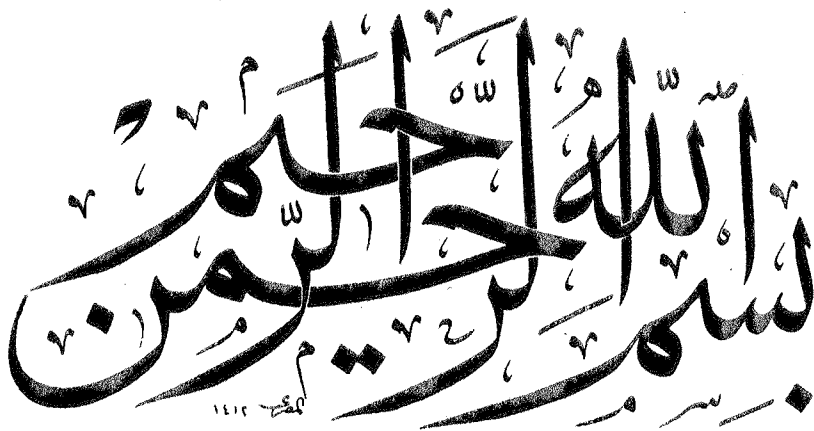 بِسْمِ اللَّهِ الرَّحْمَٰنِ الرَّحِيمِ
١٤١٢